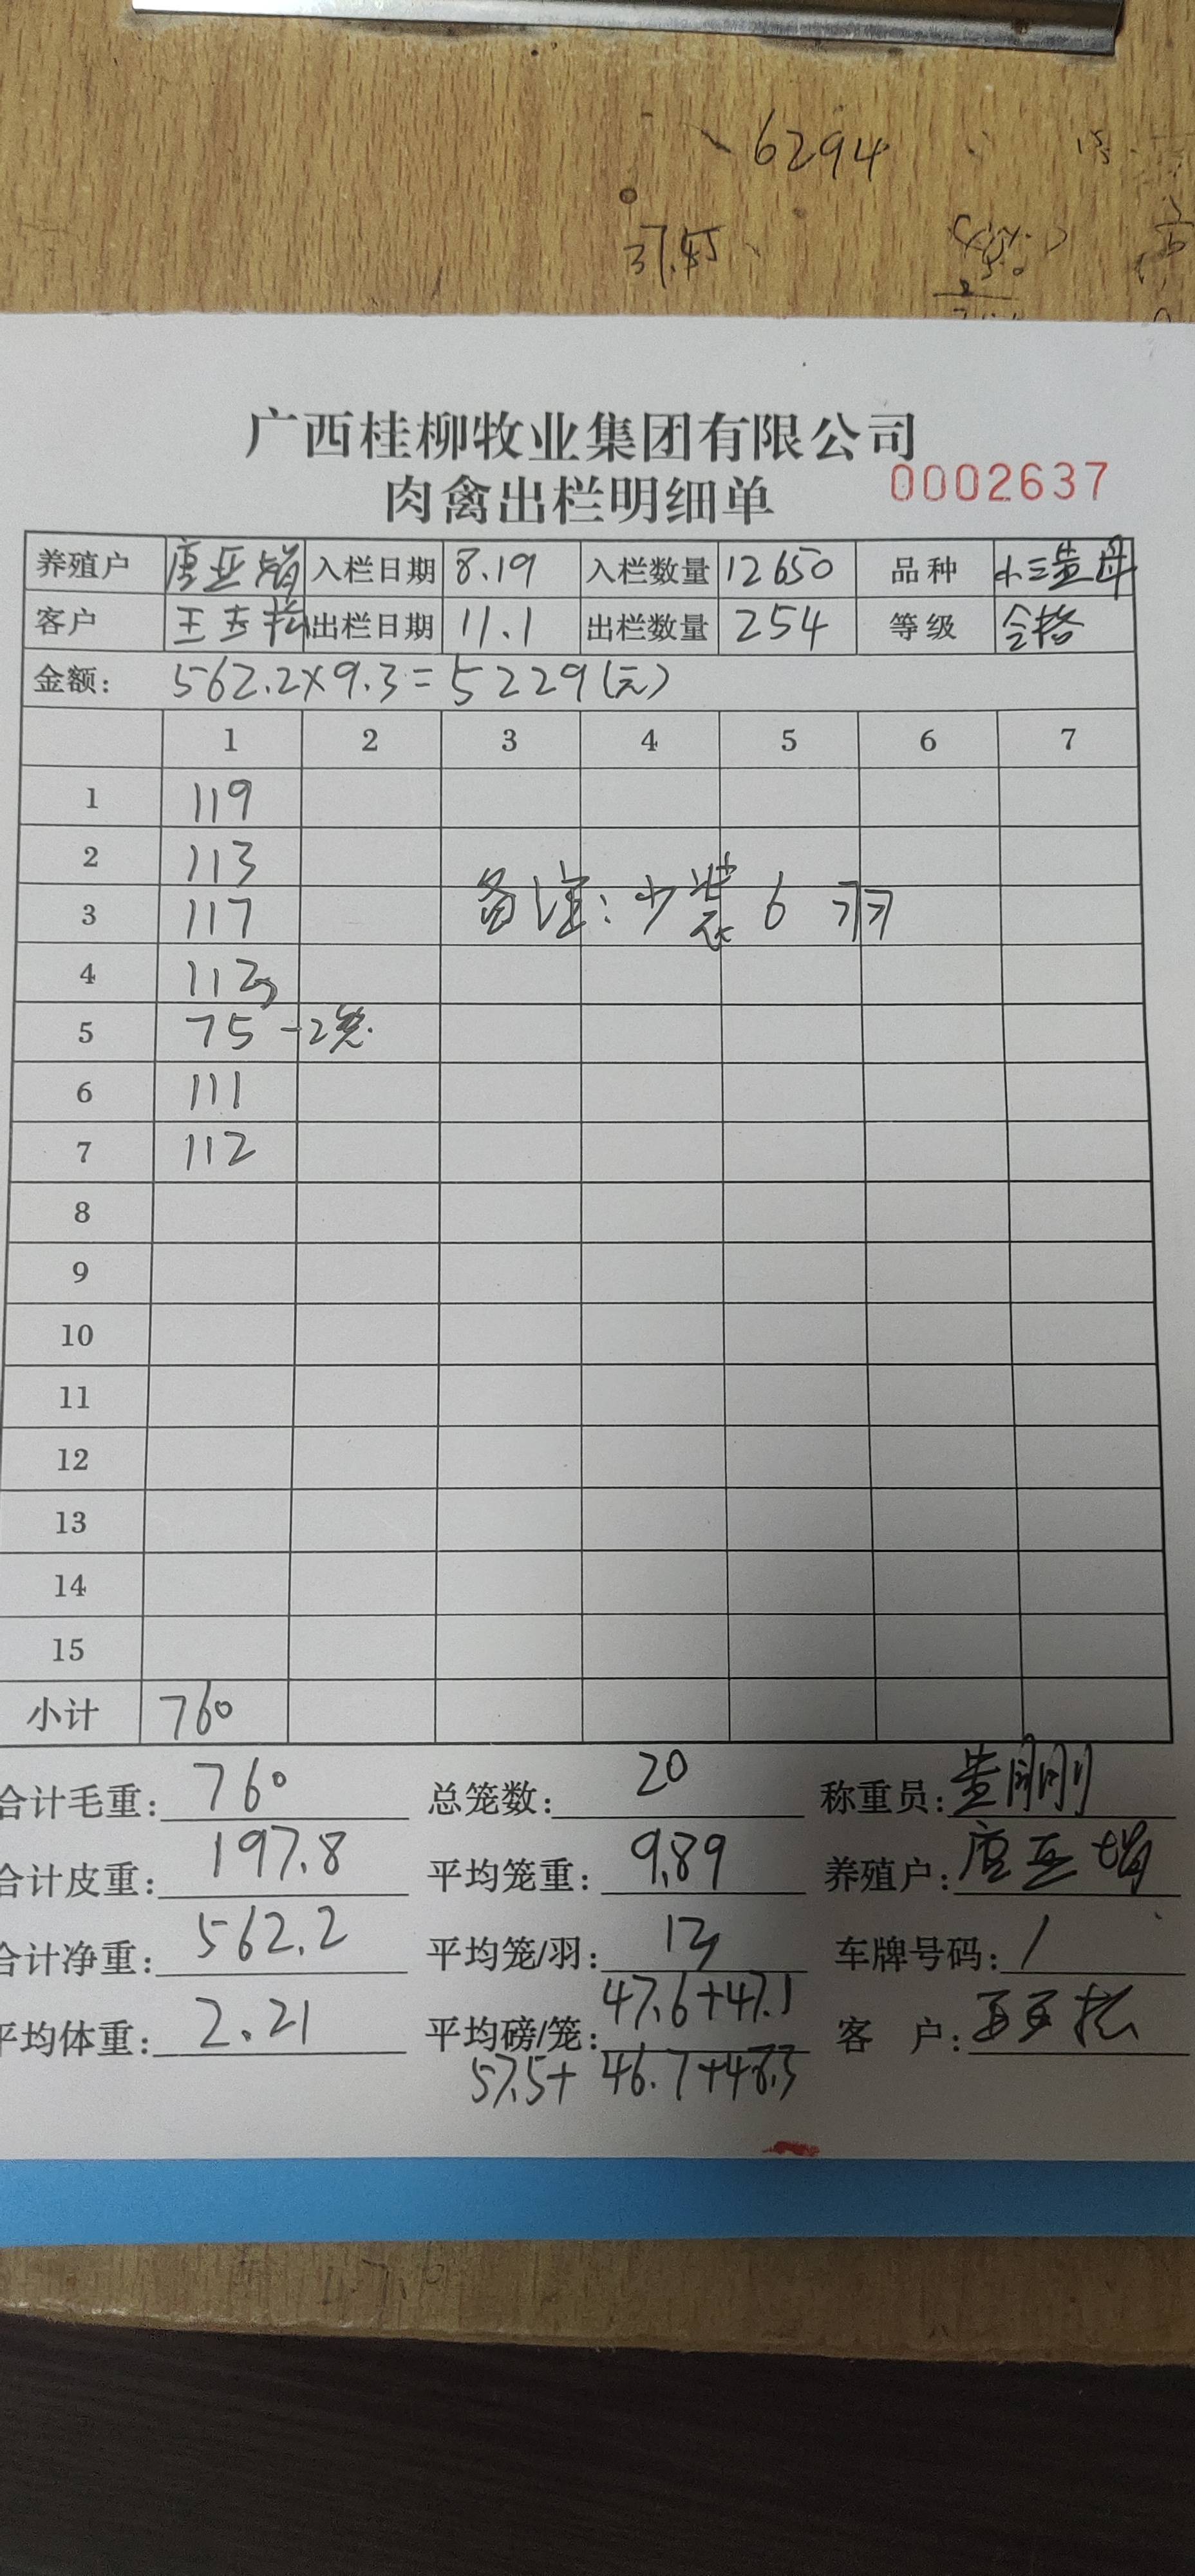 6294
37.45
广西桂柳牧业集团有限公司
肉禽出栏明细单 0002637
养殖户 唐亚 入栏日期 8.19 入栏数量 12650 品种 小三黄母
客户 王 松 出栏日期 11.1 出栏数量 254 等级 合格
金额: 562.2×9.3=5229(元)
1 2 3 4 5 6 7
1 119
2 113
备注: 少装 6 羽
3 117
4 113
5 75 -2笼.
6 111
7 112
8
9
10
11
12
13
14
15
小计 760
合计毛重: 760 总笼数: 20 称重员: 黄刚
合计皮重: 197.8 平均笼重: 9.89 养殖户: 唐亚
合计净重: 562.2 平均笼/羽: 13 车牌号码: /
平均体重: 2.21 平均磅/笼: 47.6+47.1 客 户: 王 松
57.5+ 46.7+48.3